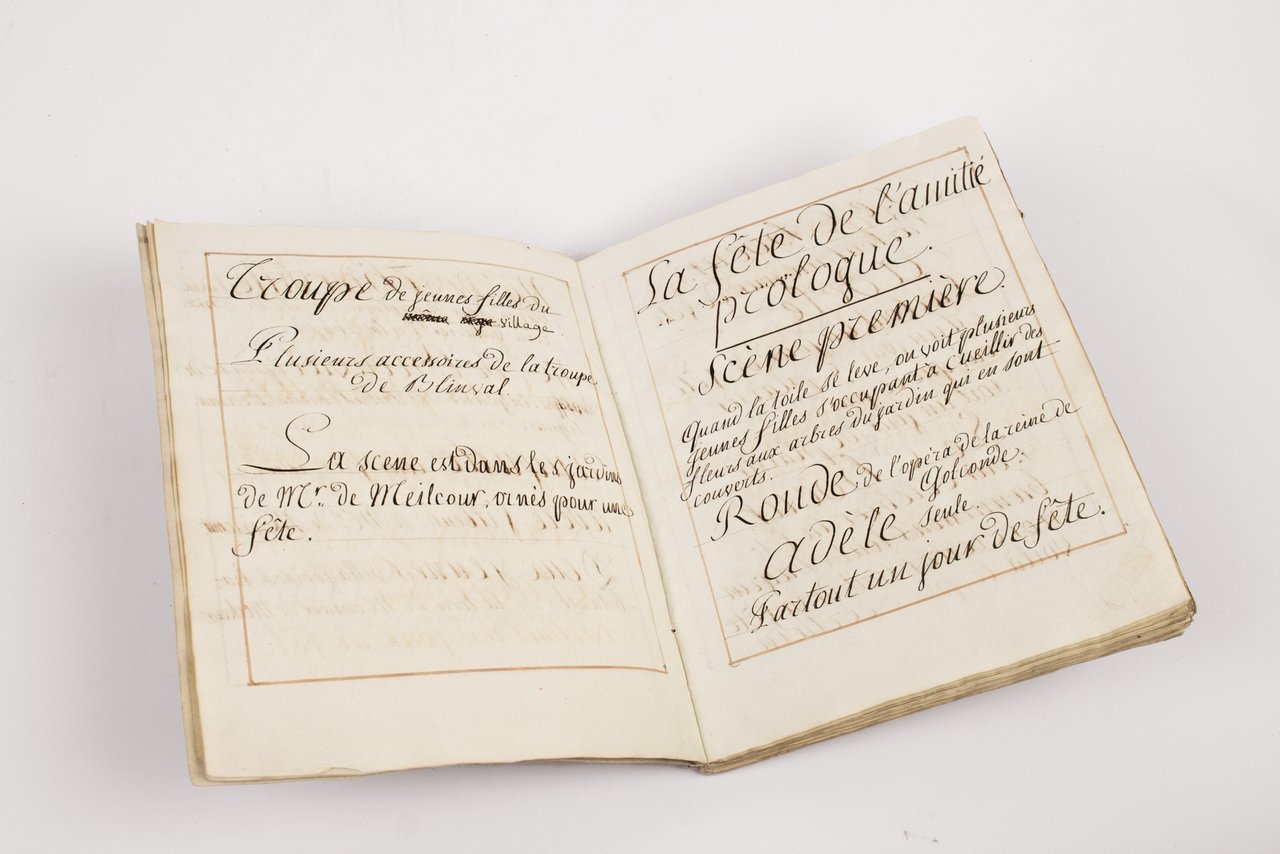 Troupe de jeunes filles du
village.
Plusieurs accessoires de la troupe
de Blinval.
La scene est dans les jardins
de Mr. de Meilcour, ornés pour une
fête.
La fête de l'amitié
prologue.
Scène première.
Quand la toile se leve, on voit plusieurs
jeunes filles s'occupant a cueillir des
fleurs aux arbres du jardin qui en sont
couverts.
Ronde de l'opéra de la reine de
Golconde.
Adèle seule.
Partout un jour de fête.